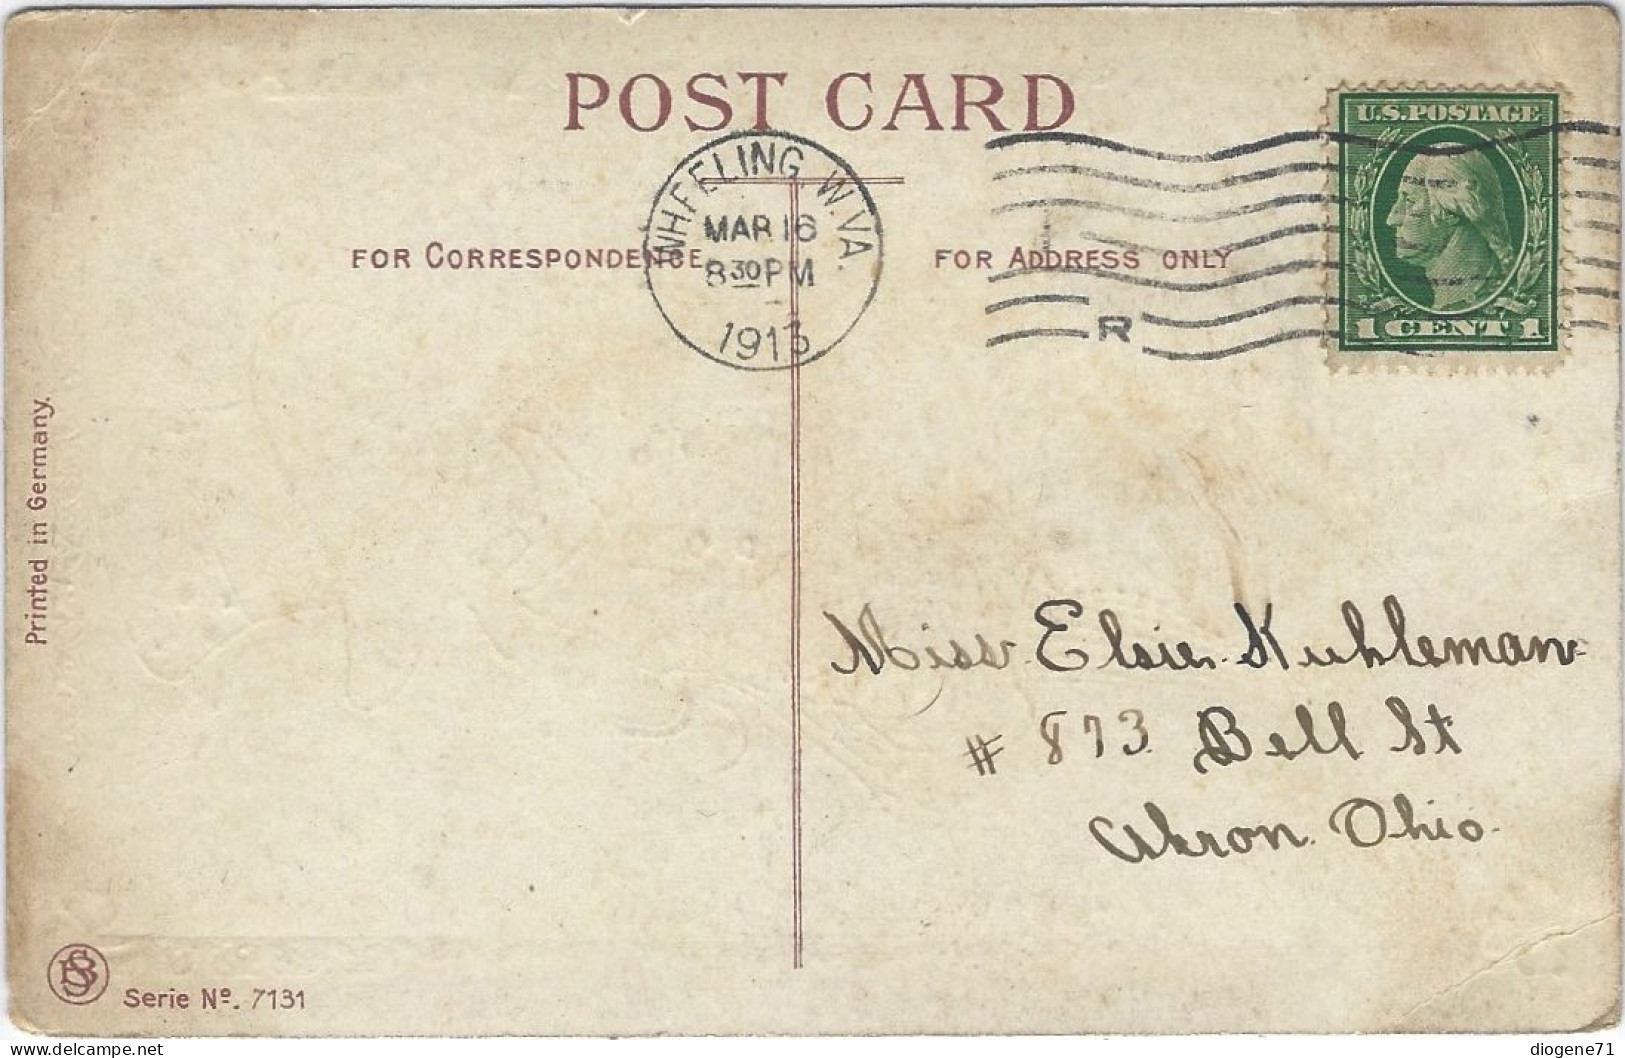 POST CARD
WHEELING, W.VA.
MAR 16
8 30 PM
1913
U.S. POSTAGE
1 CENT 1
R
FOR CORRESPONDENCE
FOR ADDRESS ONLY
Printed in Germany.
Miss Elsie Kuhleman
# 873 Bell St
Akron Ohio
Serie No. 7131
delcampe.net
diogene71